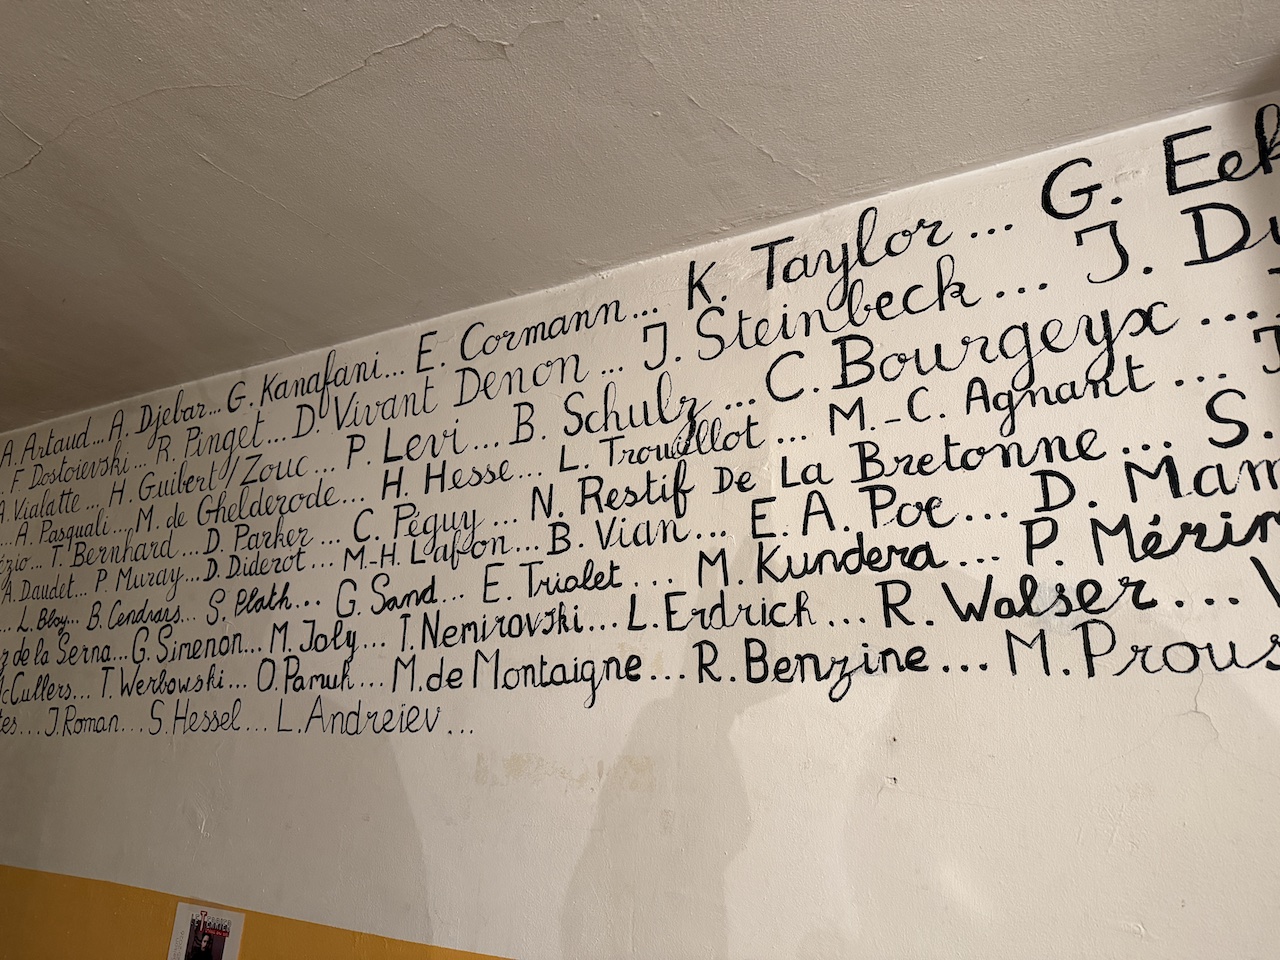 A. Artaud... A. Djebar... G. Kanafani... E. Cormann... K. Taylor... G. Eek
F. Dostoïevski... R. Pinget... D. Vivant Denon... J. Steinbeck... J. Du
A. Vialatte... H. Guibert/Zouc... P. Levi... B. Schulz... C. Bourgeyx...
... A. Pasquali... M. de Ghelderode... H. Hesse... L. Trouillot... M.-C. Agnant... J
ézio... T. Bernhard... D. Parker... C. Péguy... N. Restif De La Bretonne... S.
A. Daudet... P. Muray... D. Diderot... M.-H. Lafon... B. Vian... E. A. Poe... D. Mam
... L. Bloy... B. Cendrars... S. Plath... G. Sand... E. Triolet... M. Kundera... P. Mérim
z de la Serna... G. Simenon... M. Joly... I. Nemirovski... L. Erdrich... R. Walser... V
McCullers... T. Werbowski... O. Pamuk... M. de Montaigne... R. Benzine... M. Prous
tes... J. Roman... S. Hessel... L. Andreïev...